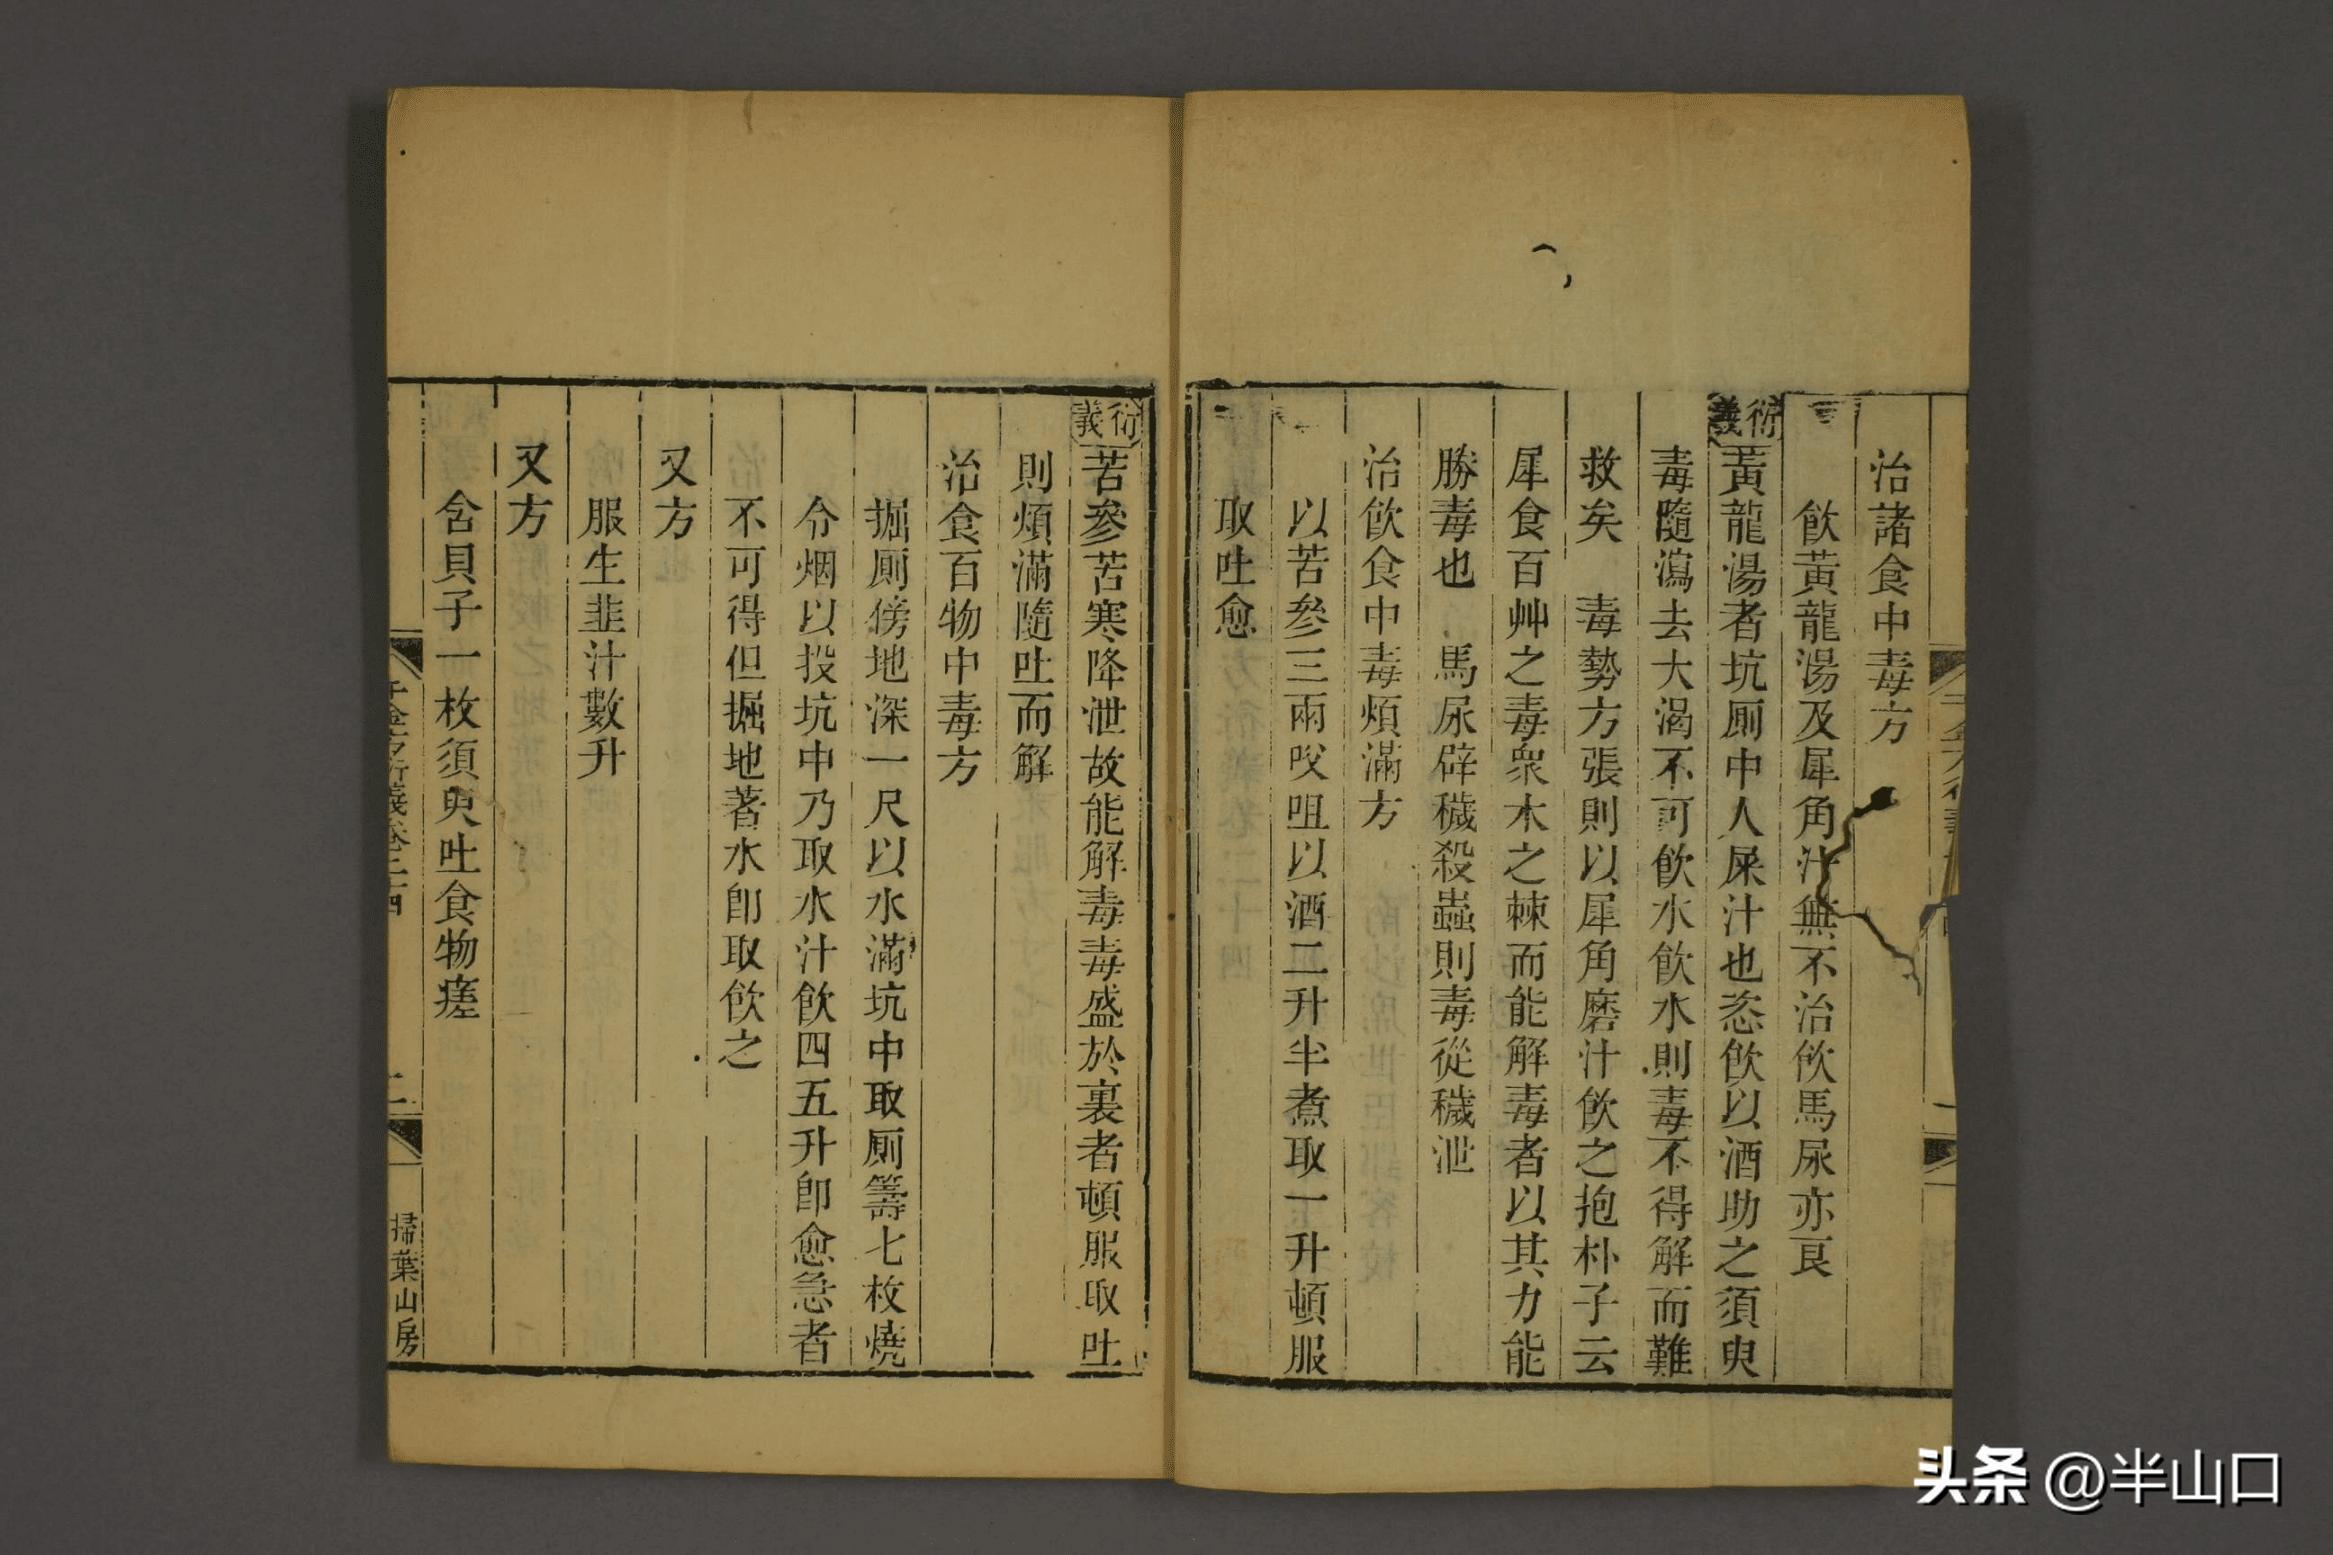 治諸食中毒方
飲黃龍湯及犀角汁無不治飲馬尿亦良
衍義
黃龍湯者坑厠中人屎汁也恣飲以酒助之須臾
毒隨瀉去大渴不可飲水飲水則毒不得解而難
救矣 毒勢方張則以犀角磨汁飲之抱朴子云
犀食百艸之毒衆木之棘而能解毒者以其力能
勝毒也 馬尿辟穢殺蟲則毒從穢泄
治飲食中毒煩滿方
以苦參三兩㕮咀以酒二升半煮取一升頓服
取吐愈
衍義
苦參苦寒降泄故能解毒毒盛於裏者頓服取吐
則煩滿隨吐而解
治食百物中毒方
掘厠傍地深一尺以水滿坑中取厠籌七枚燒
令烟以投坑中乃取水汁飲四五升卽愈急者
不可得但掘地著水卽取飲之
又方
服生韭汁數升
又方
含貝子一枚須臾吐食物瘥
千金方衍義卷二十四
二
掃葉山房
头条 @半山口